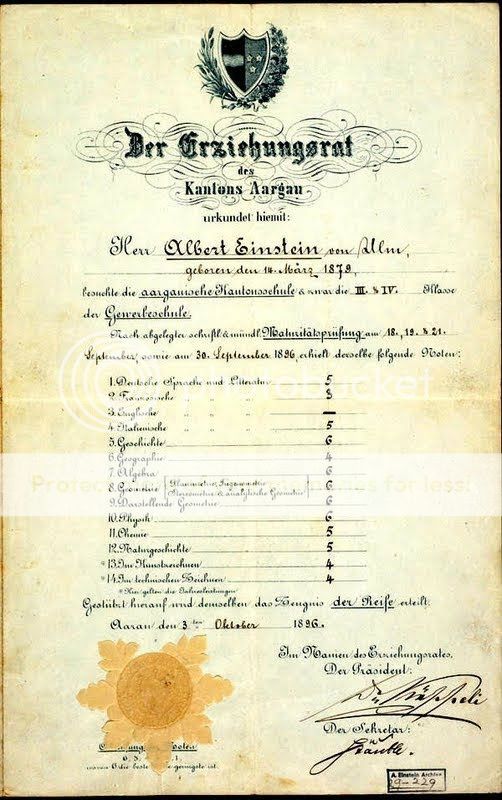 Der Erziehungsrat
des
Kantons Aargau
urkundet hiemit:
Herr Albert Einstein von Ulm,
geboren den 14. März 1879,
besuchte die aargauische Kantonsschule & zwar die III. & IV. Klasse
der Gewerbeschule.
Nach abgelegter schriftl. & mündl. Maturitätsprüfung am 18., 19. & 21.
September, sowie am 30. September 1896, erhielt derselbe folgende Noten:
1. Deutsche Sprache und Litteratur 5
2. Französische " " " 3
3. Englische " " " —
4. Italienische " " " 5
5. Geschichte 6
6. Geographie 4
7. Algebra 6
8. Geometrie (Planimetrie, Trigonometrie, Stereometrie & analytische Geometrie) 6
9. Darstellende Geometrie 6
10. Physik 6
11. Chemie 5
12. Naturgeschichte 5
*13. Im Kunstzeichnen 4
*14. Im technischen Zeichnen 4
*Hier gelten die Jahresleistungen.
Gestützt hierauf wird demselben das Zeugnis der Reife erteilt.
Aarau den 3ten Oktober 1896.
Im Namen des Erziehungsrates,
Der Präsident:
Der Sekretär:
Noten
6
die beste geringste ist.
A. Einstein Archive
29-229
photobucket
Protect for less!